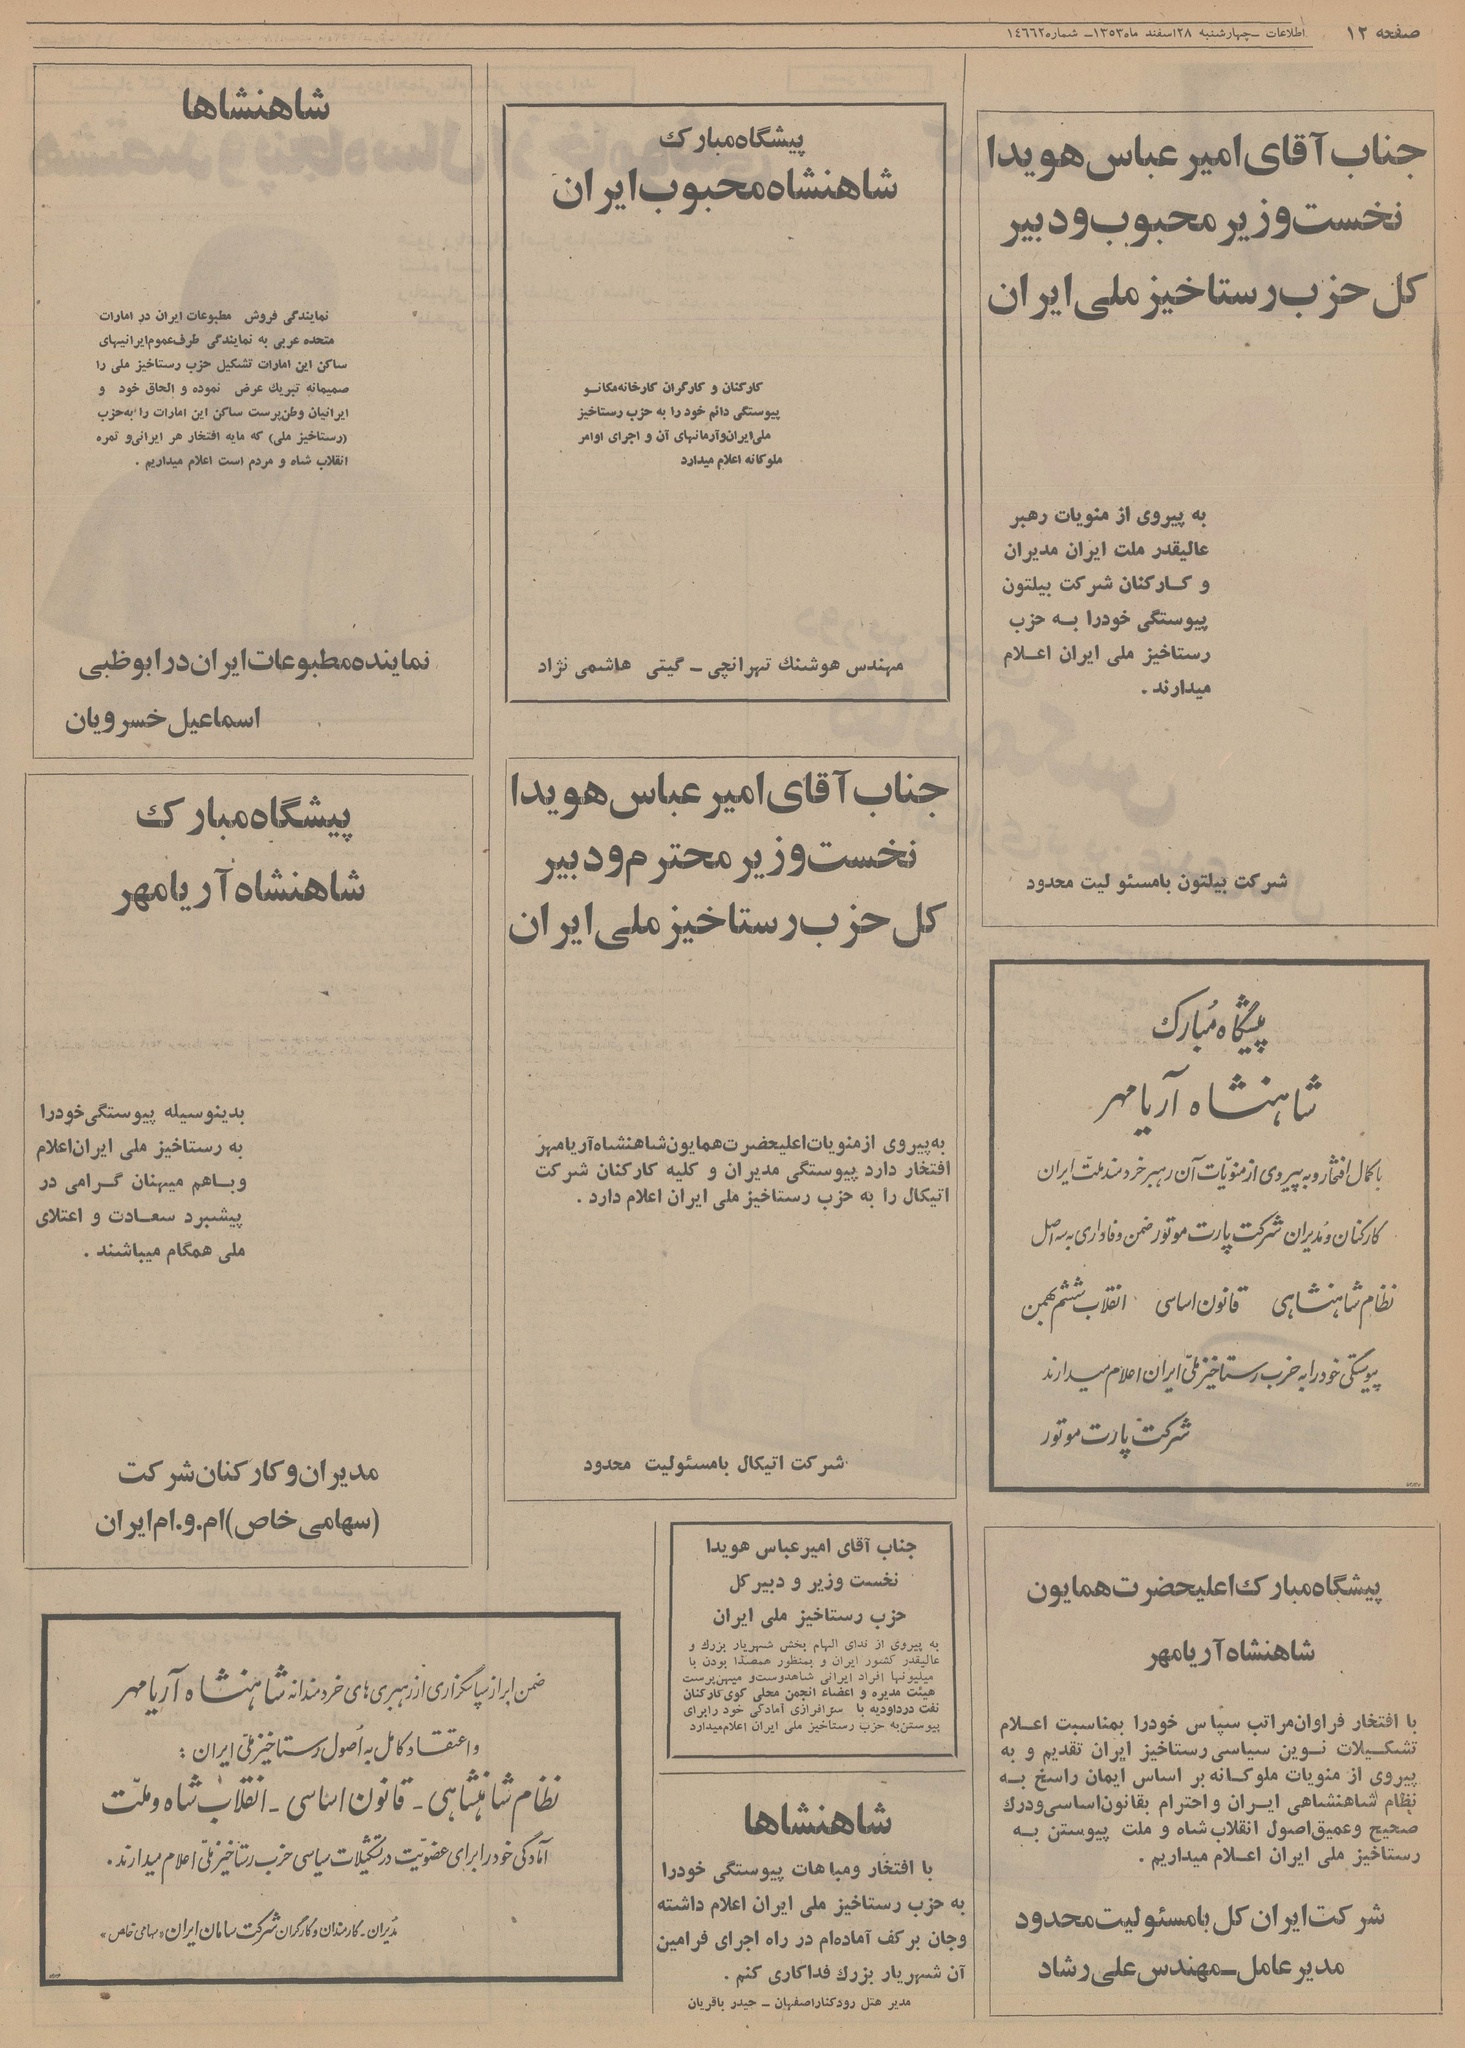 صفحه ۱۲
اطلاعات ـ چهارشنبه ۲۸ اسفند ماه ۱۳۵۳ ـ شماره ۱۴۶۶۲
جناب آقای امیر عباس هویدا
نخست وزیر محبوب و دبیر
کل حزب رستاخیز ملی ایران
به پیروی از منویات رهبر
عالیقدر ملت ایران مدیران
و کارکنان شرکت بیلتون
پیوستگی خودرا به حزب
رستاخیز ملی ایران اعلام
میدارند .
شرکت بیلتون بامسئولیت محدود
پیشگاه مبارک
شاهنشاه آریامهر
با کمال افتخار و به پیروی از منویات آن رهبر خردمند ملت ایران
کارکنان و مدیران شرکت پارت موتور ضمن وفاداری به سه اصل
نظام شاهنشاهی قانون اساسی انقلاب ششم بهمن
پیوستگی خود را به حزب رستاخیز ملی ایران اعلام میدارند
شرکت پارت موتور
پیشگاه مبارک اعلیحضرت همایون
شاهنشاه آریامهر
با افتخار فراوان مراتب سپاس خودرا بمناسبت اعلام
تشکیلات نوین سیاسی رستاخیز ایران تقدیم و به
پیروی از منویات ملوکانه بر اساس ایمان راسخ به
نظام شاهنشاهی ایران و احترام بقانون اساسی و درک
صحیح و عمیق اصول انقلاب شاه و ملت پیوستن به
رستاخیز ملی ایران اعلام میداریم .
شرکت ایران کل بامسئولیت محدود
مدیر عامل ـ مهندس علی رشاد
پیشگاه مبارک
شاهنشاه محبوب ایران
کارکنان و کارگران کارخانه مکانو
پیوستگی دائم خود را به حزب رستاخیز
ملی ایران و آرمانهای آن و اجرای اوامر
ملوکانه اعلام میدارد
مهندس هوشنگ تهرانچی ـ گیتی هاشمی نژاد
جناب آقای امیر عباس هویدا
نخست وزیر محترم و دبیر
کل حزب رستاخیز ملی ایران
به پیروی از منویات اعلیحضرت همایون شاهنشاه آریامهر
افتخار دارد پیوستگی مدیران و کلیه کارکنان شرکت
اتیکال را به حزب رستاخیز ملی ایران اعلام دارد .
شرکت اتیکال بامسئولیت محدود
جناب آقای امیر عباس هویدا
نخست وزیر و دبیر کل
حزب رستاخیز ملی ایران
به پیروی از ندای الهام بخش شهریار بزرگ و
عالیقدر کشور ایران و بمنظور همصدا بودن با
میلیونها افراد ایرانی شاهدوست و میهن پرست
هیئت مدیره و اعضاء انجمن محلی کوی کارکنان
نفت در داودیه با سرافرازی آمادگی خود را برای
پیوستن به حزب رستاخیز ملی ایران اعلام میدارد
شاهنشاها
با افتخار و مباهات پیوستگی خودرا
به حزب رستاخیز ملی ایران اعلام داشته
و جان بر کف آماده‌ام در راه اجرای فرامین
آن شهریار بزرگ فداکاری کنم .
مدیر هتل رودکنار اصفهان ـ حیدر باقریان
شاهنشاها
نمایندگی فروش مطبوعات ایران در امارات
متحده عربی به نمایندگی طرف عموم ایرانیهای
ساکن این امارات تشکیل حزب رستاخیز ملی را
صمیمانه تبریک عرض نموده و الحاق خود و
ایرانیان وطن پرست ساکن این امارات را به حزب
(رستاخیز ملی) که مایه افتخار هر ایرانی و ثمره
انقلاب شاه و مردم است اعلام میداریم .
نماینده مطبوعات ایران در ابوظبی
اسماعیل خسرویان
پیشگاه مبارک
شاهنشاه آریامهر
بدینوسیله پیوستگی خودرا
به رستاخیز ملی ایران اعلام
و باهم میهنان گرامی در
پیشبرد سعادت و اعتلای
ملی همگام میباشند .
مدیران و کارکنان شرکت
(سهامی خاص) ام.و.ام ایران
ضمن ابراز سپاسگزاری از رهبری های خردمندانه شاهنشاه آریامهر
و اعتقاد کامل به اصول رستاخیز ملی ایران :
نظام شاهنشاهی ـ قانون اساسی ـ انقلاب شاه و ملت
آمادگی خود را برای عضویت در تشکیلات سیاسی حزب رستاخیز ملی اعلام میدارند .
مدیران ـ کارمندان و کارگران شرکت سامان ایران «سهامی خاص»